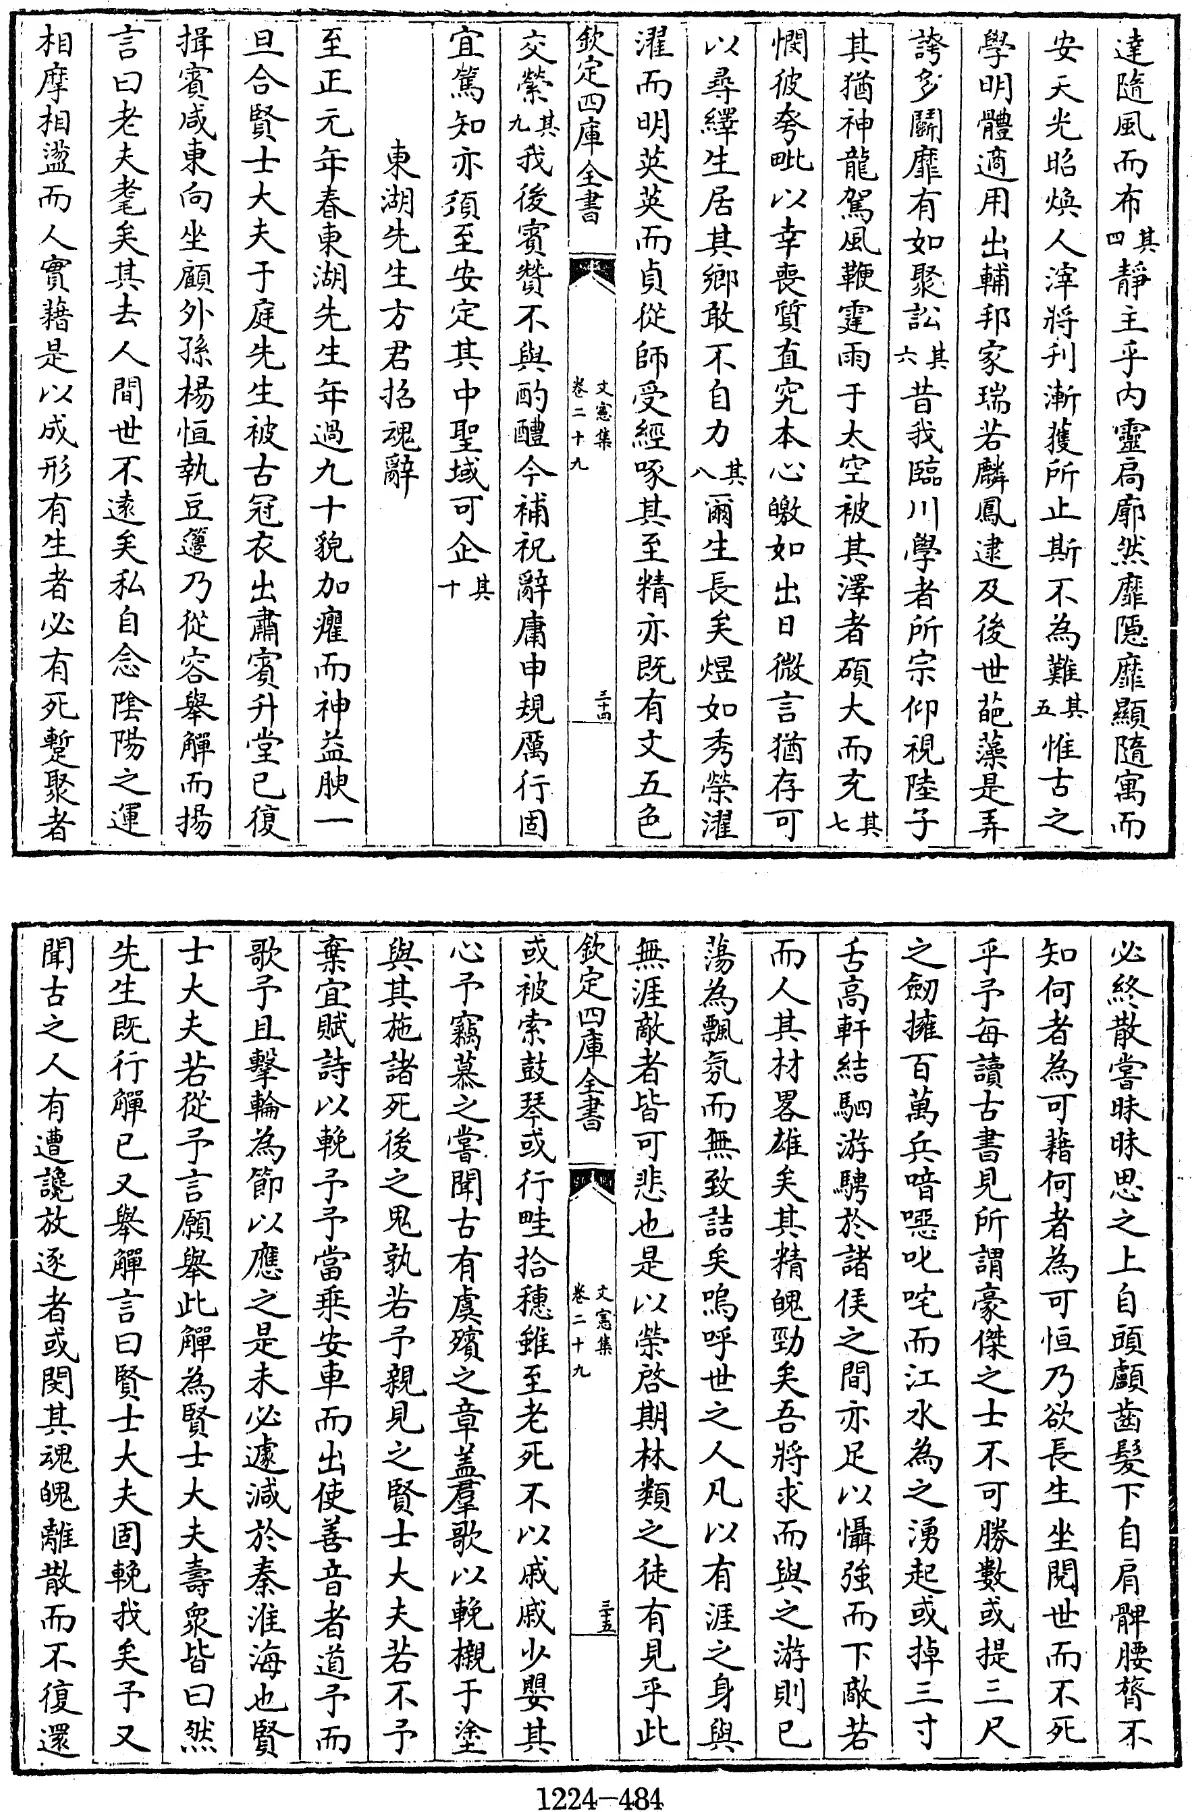 達隨風而布其四靜主乎内靈扃廓然靡隱靡顯隨寓而
安天光昭煥人滓將刋漸獲所止斯不為難其五惟古之
學明體適用出輔邦家瑞若麟鳳逮及後世葩藻是弄
誇多鬭靡有如聚訟其六昔我臨川學者所宗仰視陸子
其猶神龍駕風鞭霆雨于太空被其澤者碩大而充其七
憫彼夸毗以幸喪質直究本心皦如出日微言猶存可
以尋繹生居其鄉敢不自力其八爾生長矣煜如秀榮濯
濯而明英英而貞從師受經啄其至精亦既有文五色
欽定四庫全書
文憲集
卷二十九
三十四
交縈其九我後賓贊不與酌醴今補祝辭庸申規厲行固
宜篤知亦須至安定其中聖域可企其十
東湖先生方君招魂辭
至正元年春東湖先生年過九十貌加癯而神益腴一
旦合賢士大夫于庭先生被古冠衣出肅賓升堂已復
揖賓咸東向坐顧外孫楊恒執豆籩乃從容舉觶而揚
言曰老夫耄矣其去人間世不遠矣私自念陰陽之運
相摩相盪而人實藉是以成形有生者必有死蹔聚者
必終散嘗昧昧思之上自頭顱齒髮下自肩髀腰膂不
知何者為可藉何者為可恒乃欲長生坐閲世而不死
乎予每讀古書見所謂豪傑之士不可勝數或提三尺
之劒擁百萬兵喑噁叱咤而江水為之湧起或掉三寸
舌高軒結駟游騁於諸侯之間亦足以懾強而下敵若
而人其材畧雄矣其精魄勁矣吾將求而與之游則已
蕩為飄氛而無致詰矣嗚呼世之人凡以有涯之身與
無涯敵者皆可悲也是以榮啓期林類之徒有見乎此
欽定四庫全書
文憲集
卷二十九
三十五
或被索鼓琴或行畦拾穗雖至老死不以戚戚少嬰其
心予竊慕之嘗聞古有虞殯之章盖羣歌以輓櫬于塗
與其施諸死後之鬼孰若予親見之賢士大夫若不予
棄宜賦詩以輓予予當乗安車而出使善音者道予而
歌予且擊輪為節以應之是未必遽減於秦淮海也賢
士大夫若從予言願舉此觶為賢士大夫壽衆皆曰然
先生既行觶已又舉觶言曰賢士大夫固輓我矣予又
聞古之人有遭讒放逐者或閔其魂魄離散而不復還
1224-484